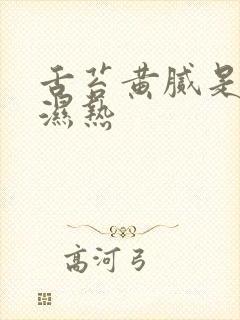 舌苔黄腻是
濕熱
高河弓